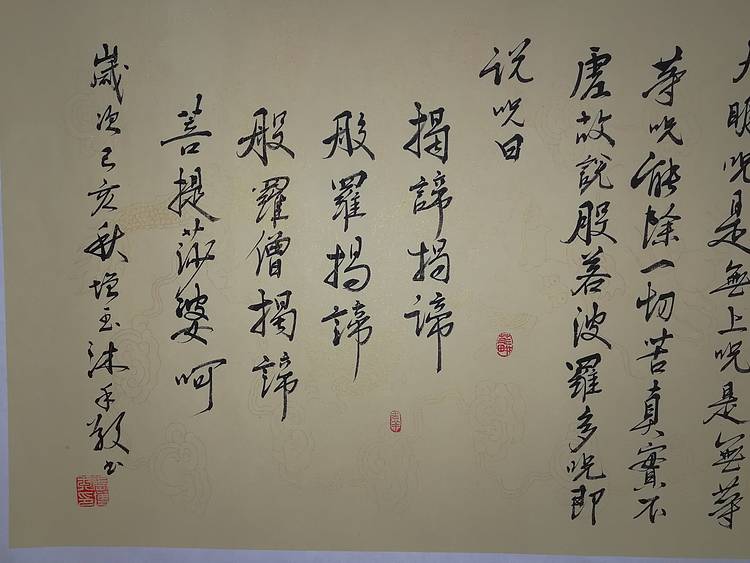 大明咒是無上咒是無等
等咒能除一切苦真實不
虛故說般若波羅多咒即
说咒曰
揭諦揭諦
般羅揭諦
般羅僧揭諦
菩提莎婆呵
歲次己亥秋增玉沐手敬书